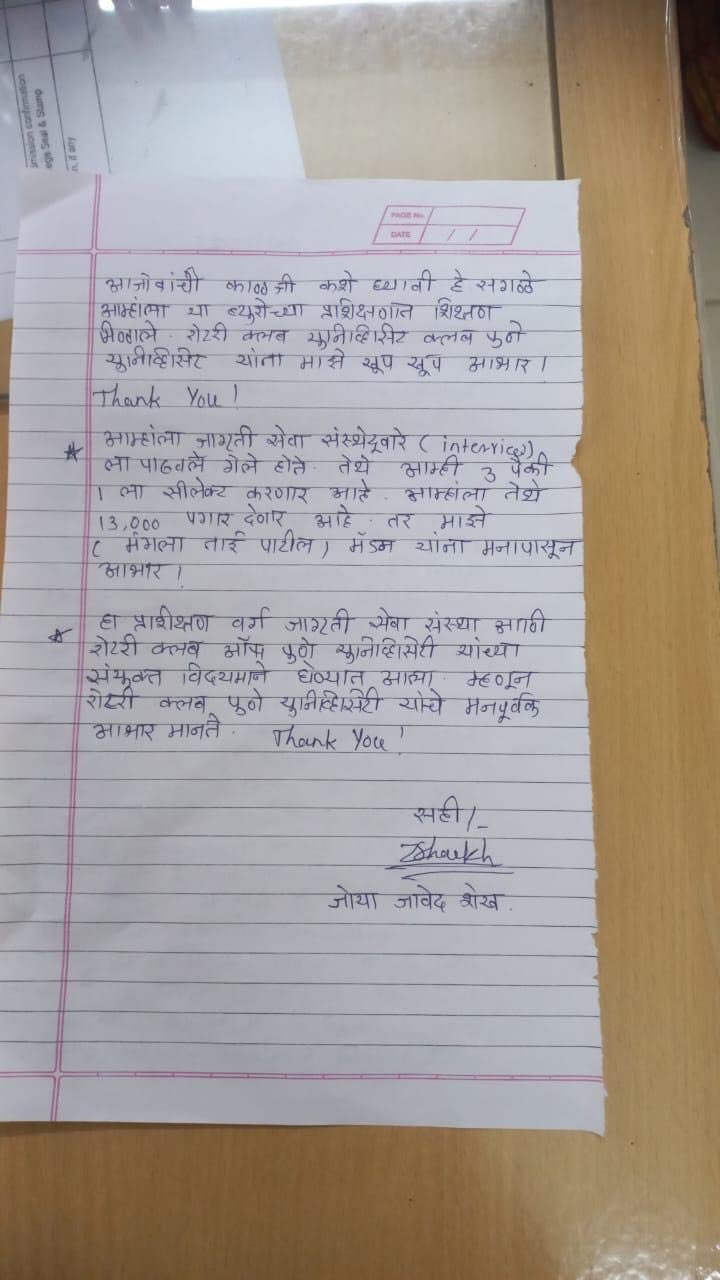 mission confirmation
ege Seal & Stamp
n, if any
PAGE No.
DATE / /
आजोबांची काळजी कशे घ्यावी हे सगळे
आम्हांला या ब्युरोच्या प्रशिक्षणात शिक्षण
मिळाले. रोटरी क्लब युनिव्हिसिट क्लब पुणे
युनिव्हिसिट यांना माझे खूप खूप आभार।
Thank You!
★ आम्हांला जागृती सेवा संस्थेद्वारे (interview)
ला पाठवले गेले होते. तेथे आम्ही 3 पैकी
1 ला सीलेक्ट करणार आहे. आम्हांला तेथे
13,000 पगार देणार आहे. तर माझे
( मंगला ताई पाटील ) मॅडम यांना मनापासून
आभार।
★ हा प्रशिक्षण वर्ग जागृती सेवा संस्था आणि
रोटरी क्लब ऑफ पुणे युनिव्हिसिटी यांच्या
संयुक्त विदयमाने घेण्यात आला. म्हणून
रोटरी क्लब पुणे युनिव्हिसिटी यांचे मनपूर्वक
आभार मानते. Thank You!
सही/-
ZShaikh
जोया जावेद शेख.